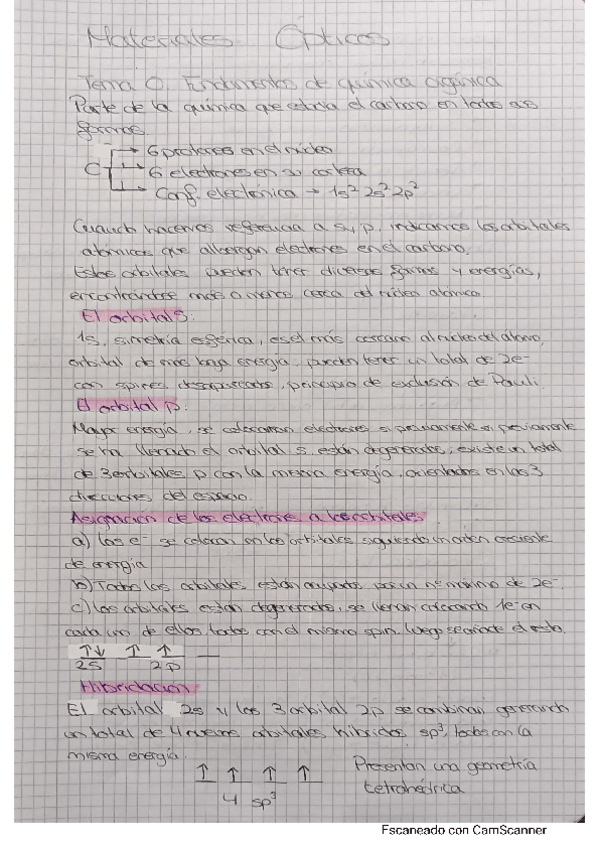 Materiales Ópticos
Tema 0. Fundamentos de química orgánica
Parte de la química que estudia el carbono en todas sus
formas.
C → 6 protones en el núcleo
→ 6 electrones en su corteza
→ Conf. electrónica → 1s² 2s² 2p²
Cuando hacemos referencia a s y p, indicamos los orbitales
atómicos que albergan electrones en el carbono.
Estos orbitales pueden tener diversas formas y energías,
encontrándose más o menos cerca del núcleo atómico
El orbital S:
1s, simetría esférica, es el más cercano al núcleo del átomo,
orbital de más baja energía, pueden tener un total de 2e⁻
con spines desapareados, principio de exclusión de Pauli.
El orbital p:
Mayor energía, se colocarán electrones si previamente si previamente
se ha llenado el orbital s, están degenerados, existe un total
de 3 orbitales p con la misma energía, orientados en las 3
direcciones del espacio.
Asignación de los electrones a los orbitales
a) Los e⁻ se colocan en los orbitales siguiendo un orden creciente
de energía
b) Todos los orbitales están ocupados por un nº máximo de 2e⁻.
c) Los orbitales están degenerados, se llenan colocando 1e⁻ en
cada uno de ellos, todos con el mismo spin. Luego se añade el resto.
↑↓ ↑ ↑
2S 2p
Hibridación
El orbital 2s y los 3 orbital 2p se combinan generando
un total de 4 nuevos orbitales híbridos sp³, todos con la
misma energía.
↑ ↑ ↑ ↑
4 sp³
Presentan una geometría
tetrahédrica
Escaneado con CamScanner